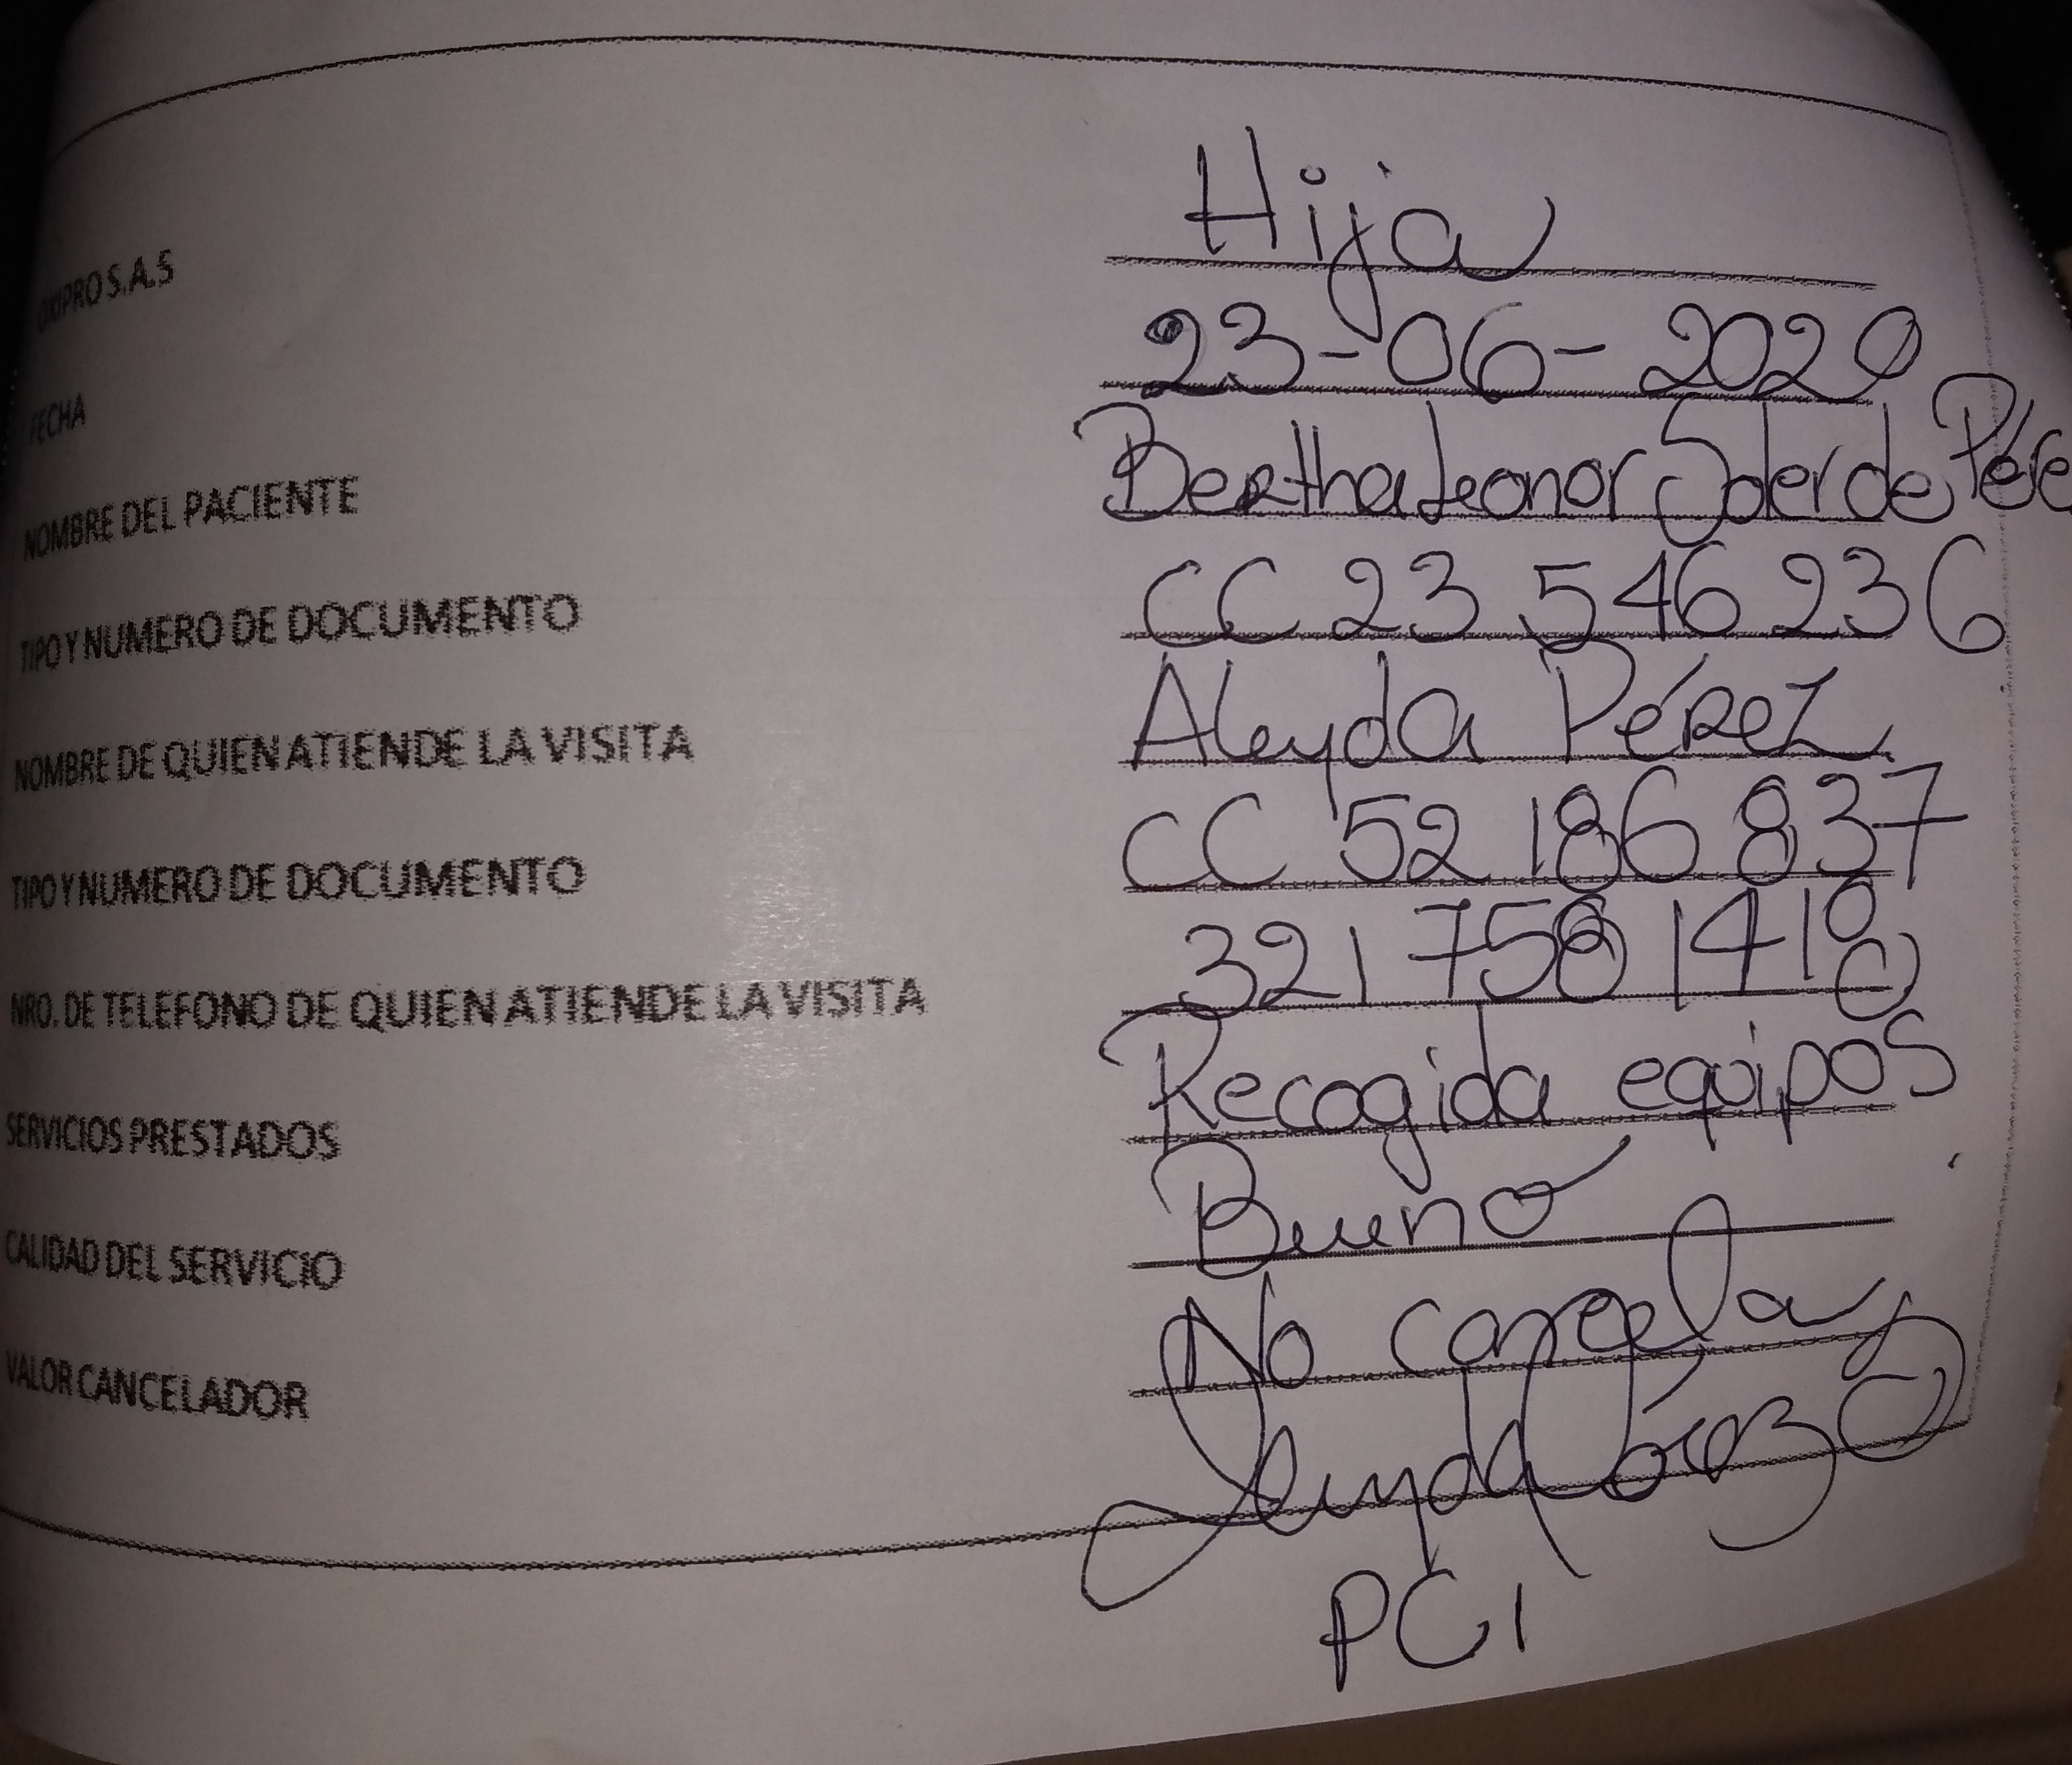 OXIPRO S.A.S Hija
FECHA 23-06-2020
NOMBRE DEL PACIENTE Bertha Leonor Soler de Pére
TIPO Y NUMERO DE DOCUMENTO CC 23.546.236
NOMBRE DE QUIEN ATIENDE LA VISITA Aleyda Pérez
TIPO Y NUMERO DE DOCUMENTO CC 52.186.837
NRO. DE TELEFONO DE QUIEN ATIENDE LA VISITA 321 758 1418
SERVICIOS PRESTADOS Recogida equipos
CALIDAD DEL SERVICIO Bueno
VALOR CANCELADOR No cancela